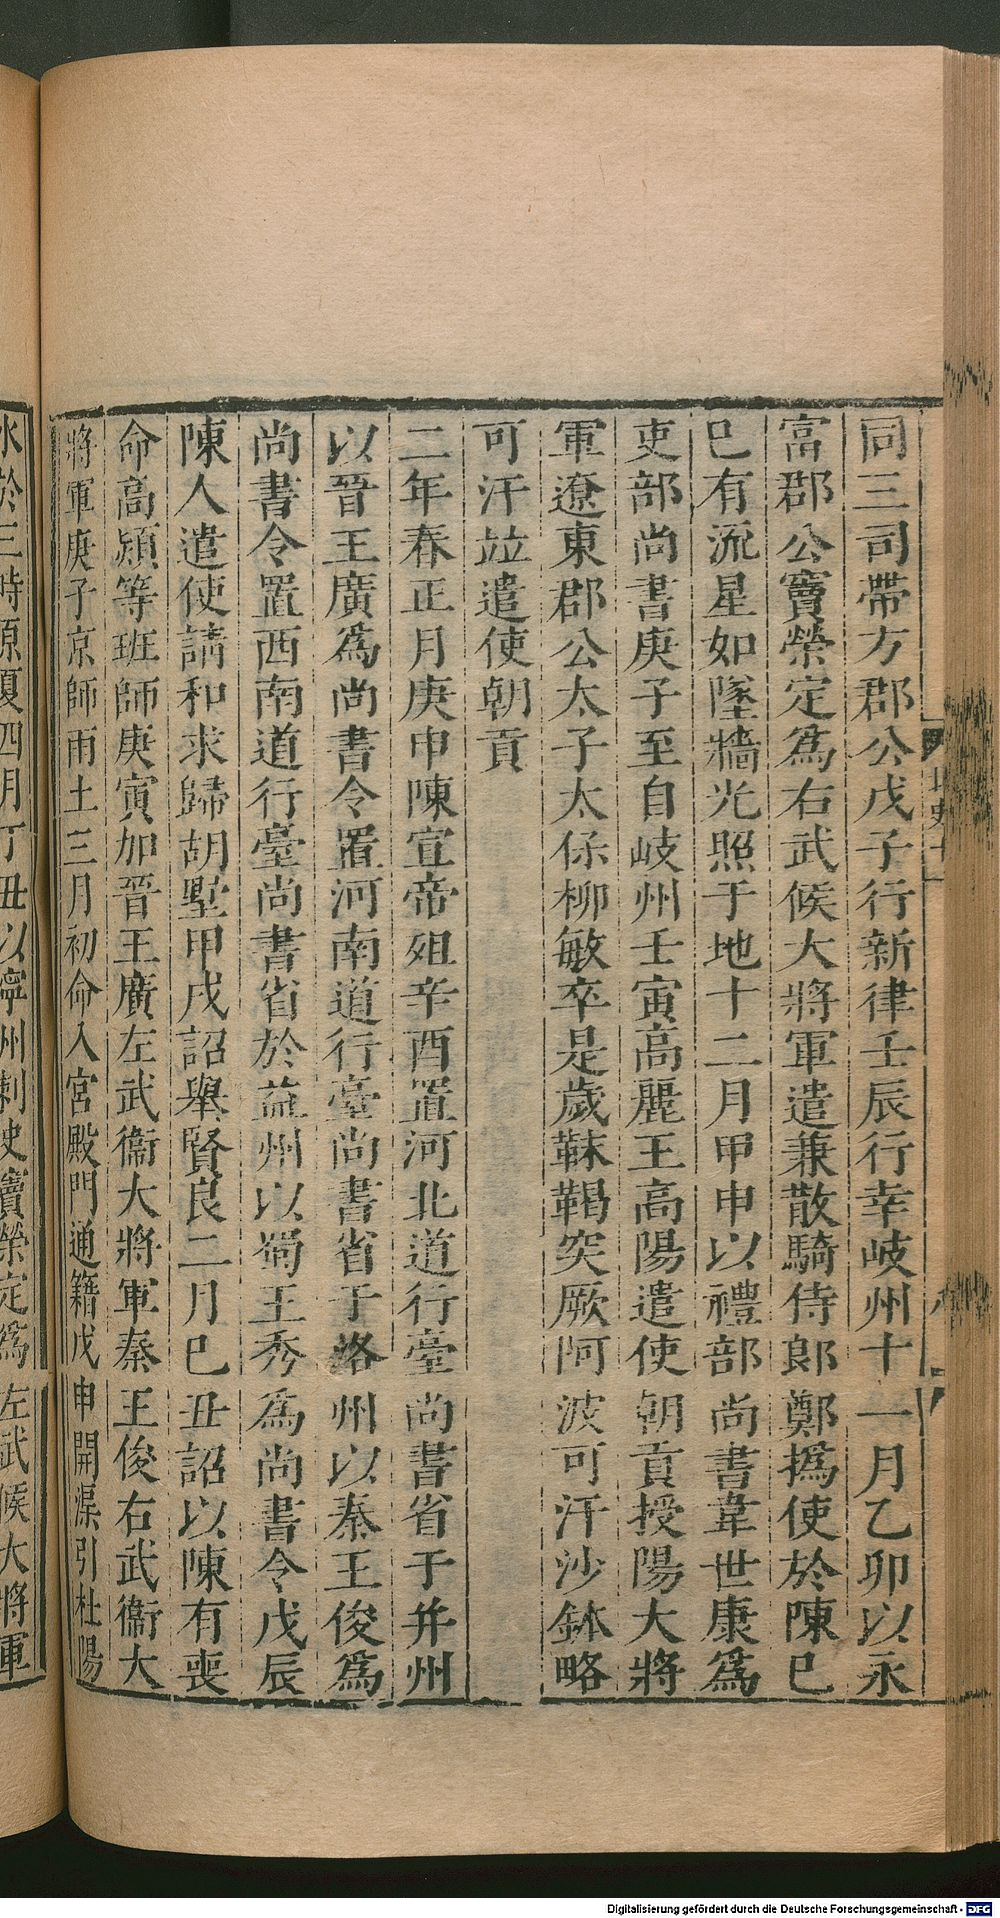 同三司帶方郡公戊子行新律壬辰行幸岐州十一月乙卯以永
富郡公竇榮定爲右武候大將軍遣兼散騎侍郎鄭撝使於陳巳
巳有流星如墜牆光照于地十二月甲申以禮部尚書韋世康爲
吏部尚書庚子至自岐州壬寅高麗王高陽遣使朝貢授陽大將
軍遼東郡公太子太保柳敏卒是歲靺鞨突厥阿波可汗沙鉢略
可汗竝遣使朝貢
二年春正月庚申陳宣帝殂辛酉置河北道行臺尚書省于并州
以晉王廣爲尚書令置河南道行臺尚書省于洛州以秦王俊爲
尚書令置西南道行臺尚書省於益州以蜀王秀爲尚書令戊辰
陳人遣使請和求歸胡墅甲戌詔舉賢良二月巳丑詔以陳有喪
命高熲等班師庚寅加晉王廣左武衞大將軍秦王俊右武衞大
將軍庚子京師雨土三月初命入宮殿門通籍戊申開渠引杜陽
水於三畤原夏四月丁丑以寧州刺史竇榮定爲左武候大將軍
Digitalisierung gefördert durch die Deutsche Forschungsgemeinschaft - DFG